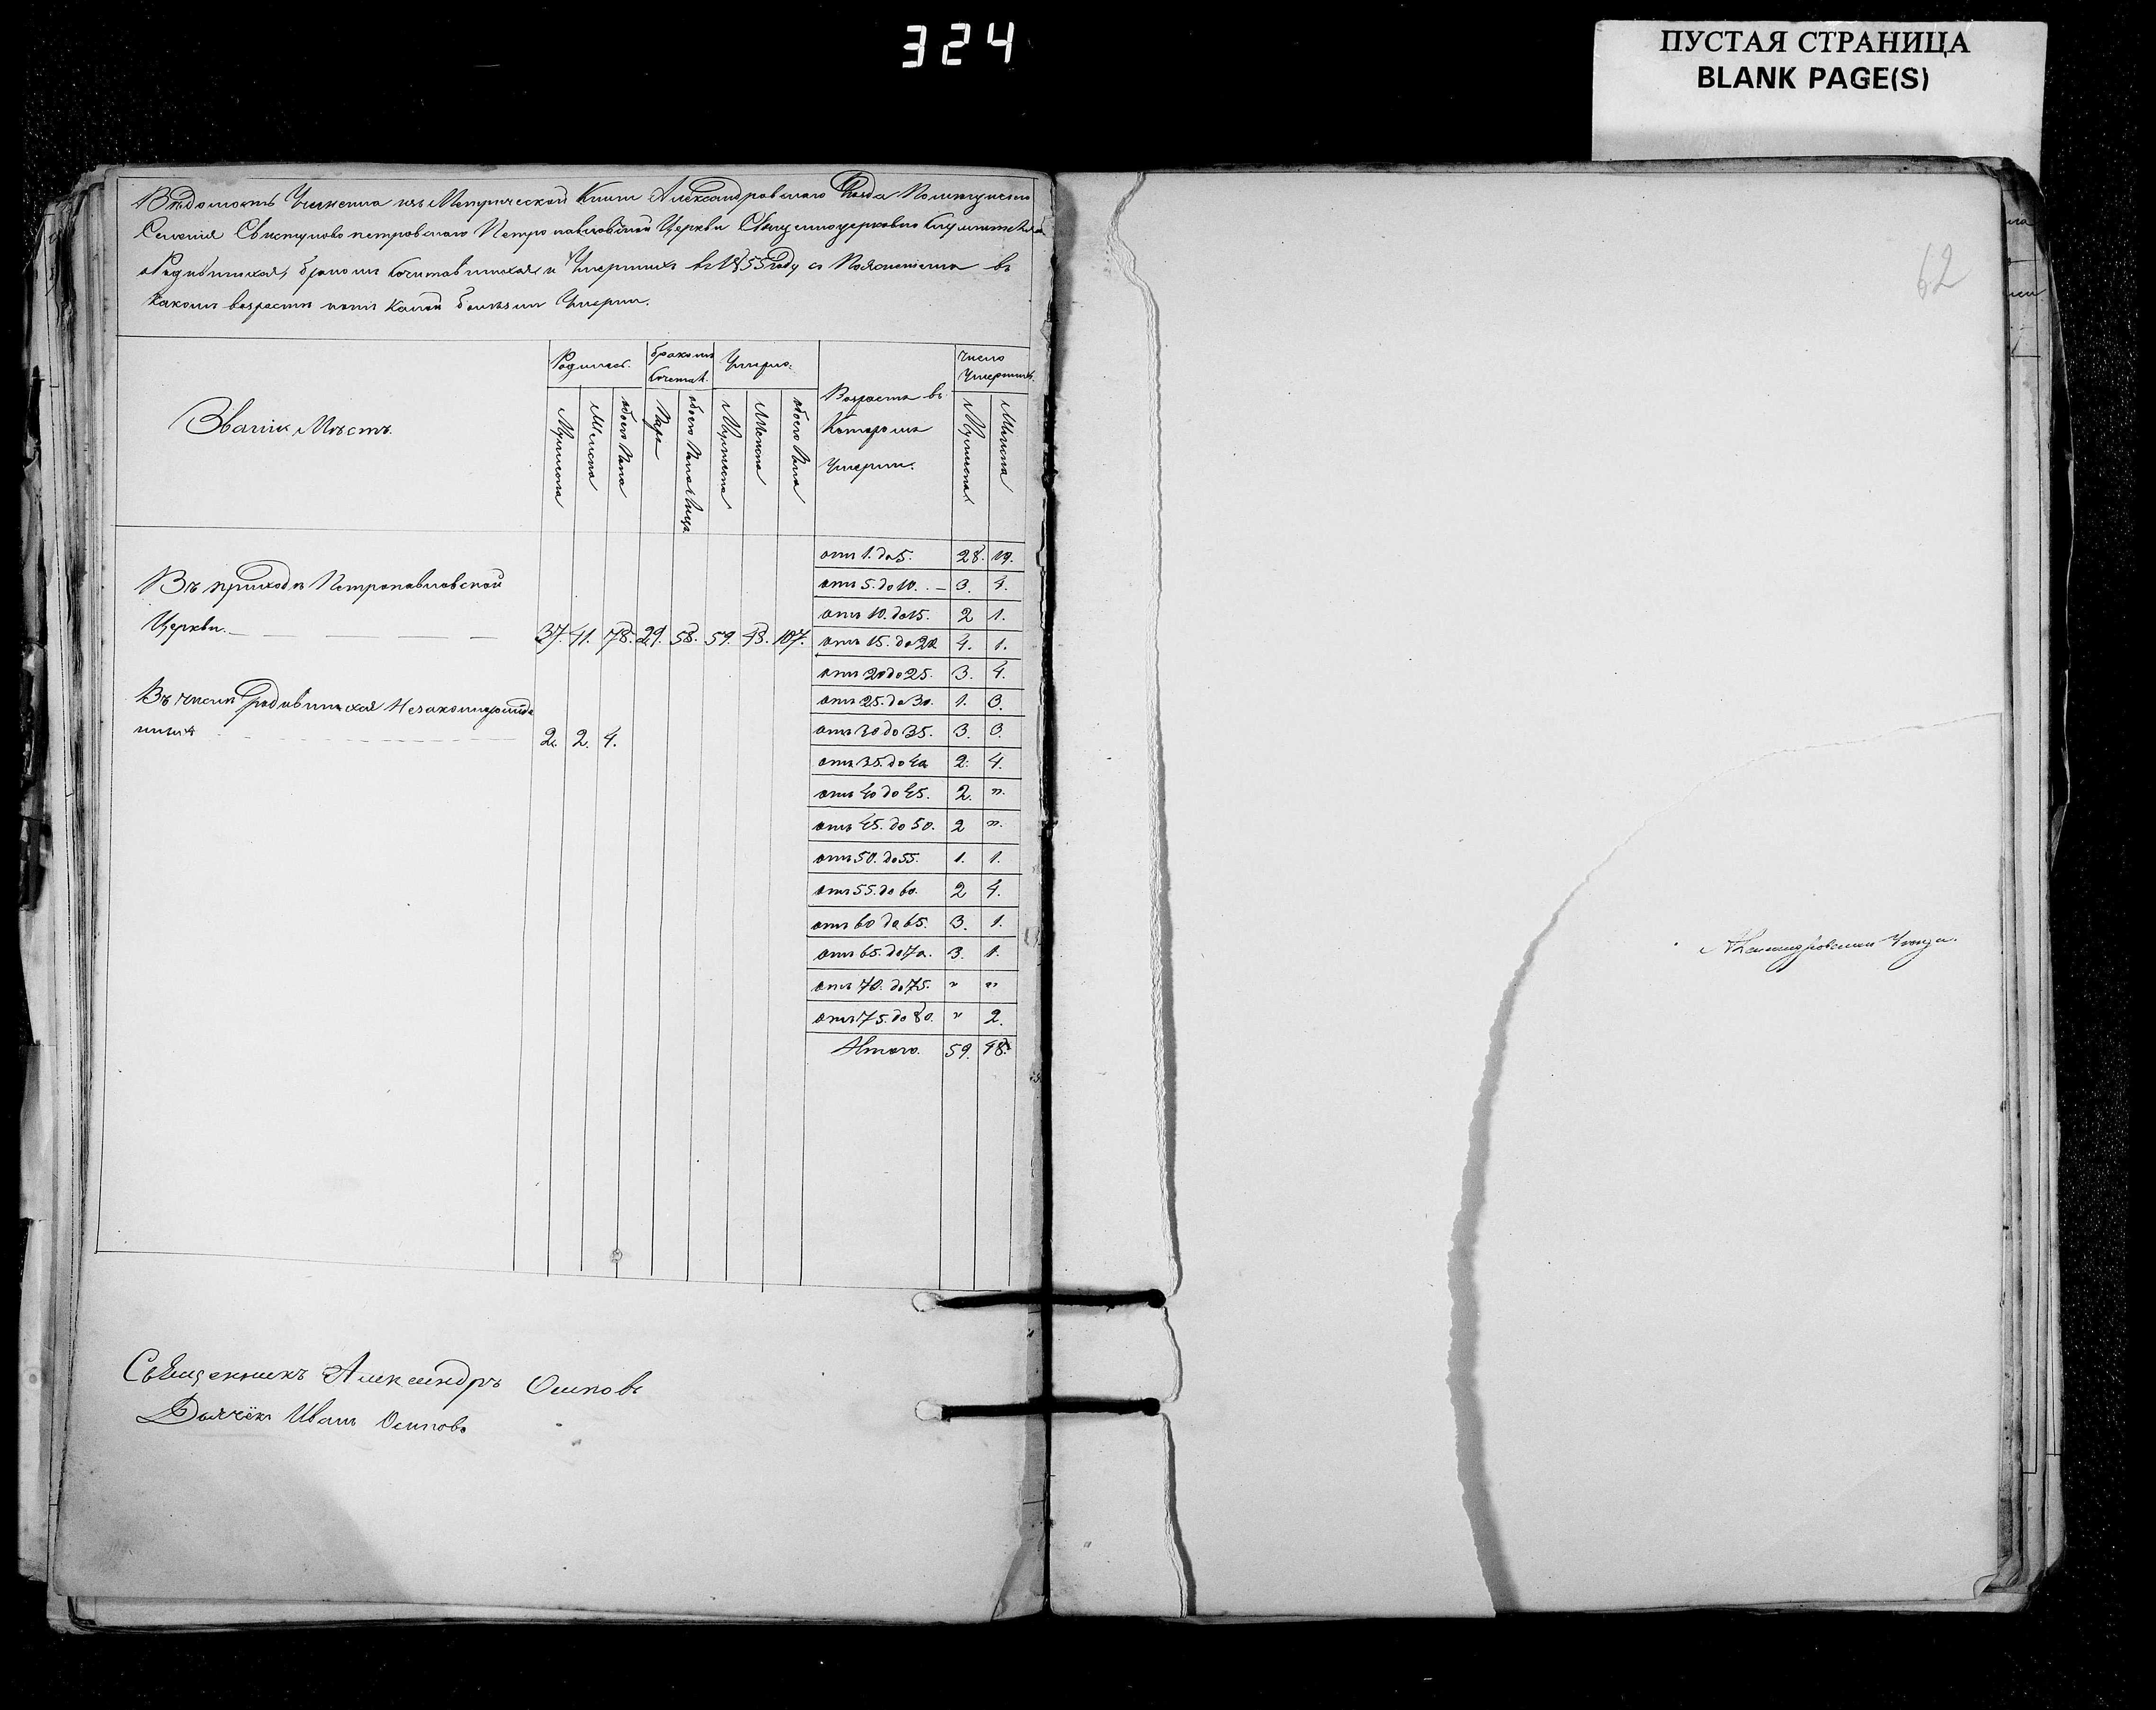 324
ПУСТАЯ СТРАНИЦА
BLANK PAGE(S)
Вѣдомость Учинена изъ Метрической Книги Александровскаго Уѣзда
Селенія Свистуново петровскаго Петро павловской Церкви Священноцерковно служителями
о Родившихся, бракомъ Сочетавшихся и Умершихъ въ 1855 году съ Поясненіемъ въ
какомъ возрастѣ и отъ какой болѣзни Умерли.
Званіе Мѣстъ.
Родилось.
бракомъ Сочетав.
Умерло.
Возрастъ въ Которомъ Умерли.
число Умершихъ.
Мужеска
Женска
обоего Пола
Паръ
обоего Пола Лицъ
Мужеска
Женска
обоего Пола
Мужеска
Женска
Въ приходѣ Петропавловской
Церкви. 37. 41. 78. 29. 58. 59. 48. 107.
Въ числѣ родившихся Незаконнорожде
нныхъ 2. 2. 4.
отъ 1. до 5. 28. 19.
отъ 5. до 10. 3. 4.
отъ 10. до 15. 2 1.
отъ 15. до 20 4. 1.
отъ 20 до 25. 3. 4.
отъ 25. до 30. 1. 3.
отъ 30 до 35. 3. 3.
отъ 35. до 40 2. 4.
отъ 40 до 45. 2. "
отъ 45. до 50. 2 "
отъ 50. до 55. 1. 1.
отъ 55. до 60. 2 4.
отъ 60 до 65. 3. 1.
отъ 65. до 70. 3. 1.
отъ 70. до 75. " "
отъ 75. до 80. " 2.
Итого. 59. 48.
Священникъ Александръ Осиповъ
Дьячёкъ Иванъ Осиповъ
62
Александровскаго Уѣзда.